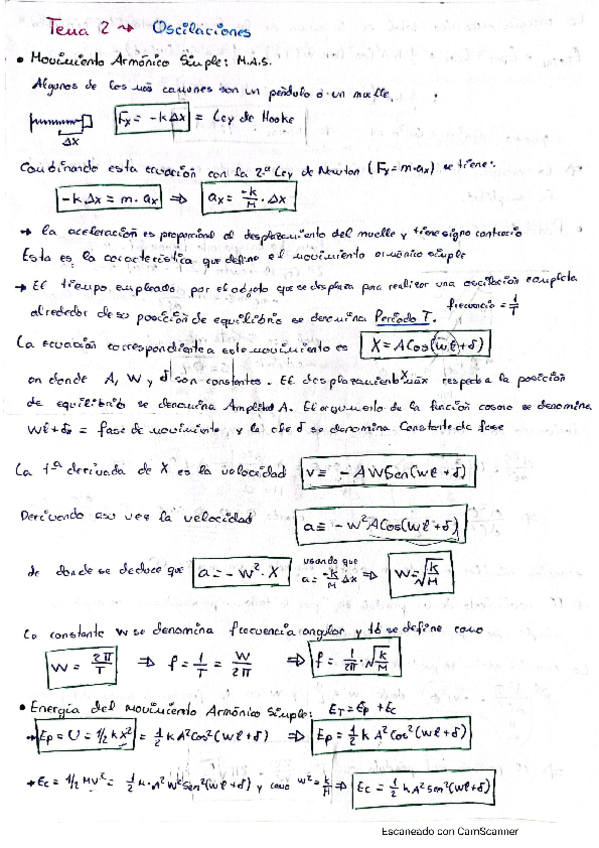 Tema 2 → Oscilaciones
• Movimiento Armónico Simple: M.A.S.
Algunos de los más comunes son un péndulo o un muelle.
Fx = -kΔx = Ley de Hooke
Δx
Combinando esta ecuación con la 2ª Ley de Newton (Fx = m·ax) se tiene:
-kΔx = m·ax ⇒ ax = -k/M · Δx
→ La aceleración es proporcional al desplazamiento del muelle y tiene signo contrario
Esta es la característica que define el movimiento armónico simple
→ El tiempo empleado por el objeto que se desplaza para realizar una oscilación completa
frecuencia = 1/T
alrededor de su posición de equilibrio se denomina Periodo T.
La ecuación correspondiente a este movimiento es X = A Cos(wt + δ)
en donde A, W y δ son constantes. El desplazamiento máx respecto a la posición
de equilibrio se denomina Amplitud A. El argumento de la función coseno se denomina
Wt + δ = fase de movimiento, y la cte δ se denomina Constante de fase
La 1ª derivada de X es la velocidad v = -AW Sen(wt + δ)
Derivando otra vez la velocidad a = -W²A Cos(wt + δ)
de donde se deduce que a = -W²·X usando que a = -k/M Δx ⇒ W = √k/M
La constante W se denomina frecuencia angular y tb se define como
W = 2π/T ⇒ f = 1/T = W/2π ⇒ f = 1/2π · √k/M
• Energía del Movimiento Armónico Simple: ET = Ep + Ec
→ Ep = U = 1/2 k x² = 1/2 k A² Cos²(wt + δ) ⇒ Ep = 1/2 k A² Cos²(wt + δ)
→ Ec = 1/2 MV² = 1/2 M·A² W² Sen²(wt + δ) y como w² = k/M ⇒ Ec = 1/2 k A² sen²(wt + δ)
Escaneado con CamScanner